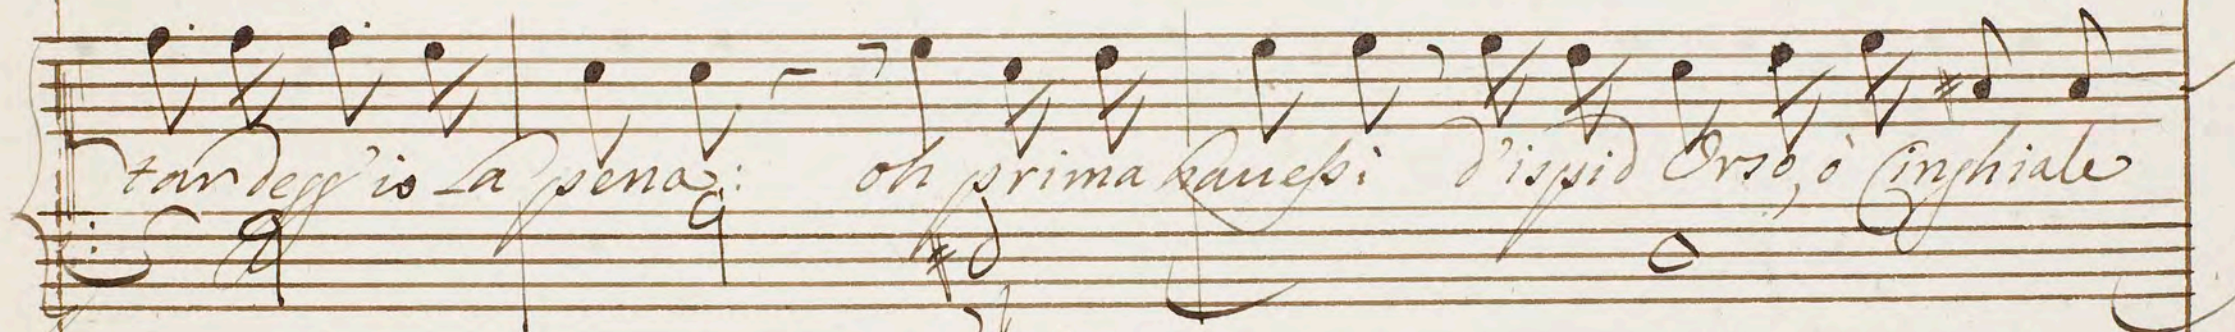 tar degg'io La pena: oh prima haueßi d'ispid Orso, ò Cinghiale